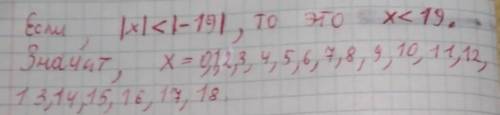 Если, |x|<|-19|, то это x<19.
Значит, x=0,1,2,3,4,5,6,7,8,9,10,11,12,
13,14,15,16,17,18.